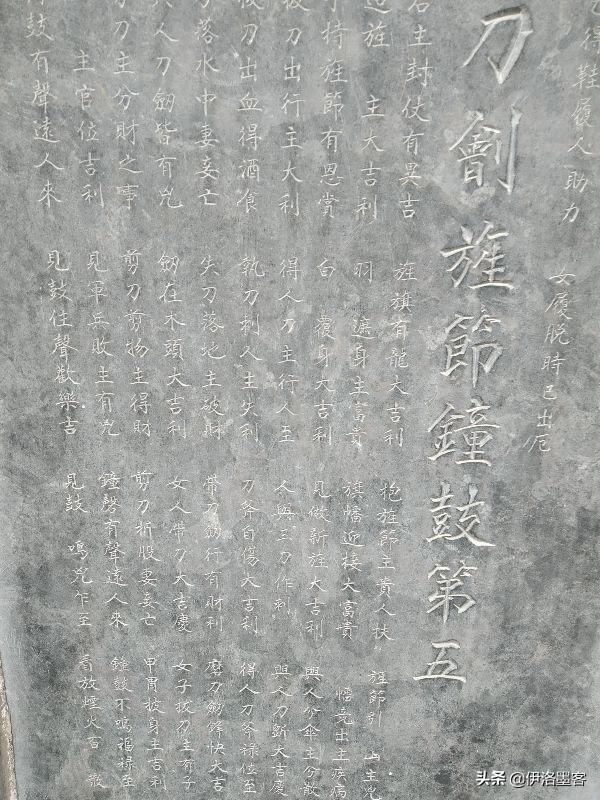 得鞋履人助力 女履脫時已出厄
刀劍旌節鐘鼓第五
石主封仗有異吉 旌旗有龍大吉利 抱旌節主貴人扶 旌節引 主兇
迎旌 主大吉利 羽 遮身主富貴 旗幡迎接大富貴 幡竟出主疾病
持旌節有恩賞 白 覆身大吉利 見做新旌大吉利 與人分傘主分散
拔刀出行主大利 得人刀主行人至 人與三刀作刺 與人刀斷大吉慶
拔刀出血得酒食 執刀刺人主失利 刀斧自傷大吉利 得人刀斧祿位至
落水中妻妾亡 失刀落地主破財 帶刀劍行有財利 磨刀劍鋒快大吉
人刀劍皆有兇 劍在木頭大吉利 女人帶刀大吉慶 女子拔刀主有子
刀主分財之事 剪刀剪物主得財 剪刀折股妻妾亡 甲冑披身主吉利
主官位吉利 見軍兵敗主有兇 鐘磬有聲遠人來 鐘鼓不鳴福祿至
鼓有聲遠人來 見鼓住聲歡樂吉 見鼓 鳴兇乍至 看放煙火百 散
头条 @伊洛墨客